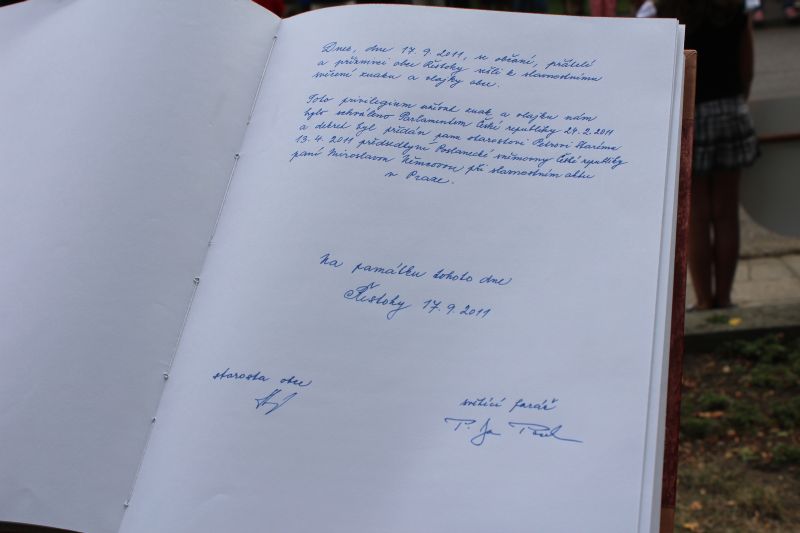 Dnes, dne 17. 9. 2011, se občané, přátelé
a příznivci obce Řistoky sešli k slavnostnímu
svěcení znaku a vlajky obce.
Toto privilegium užívat znak a vlajku nám
bylo schváleno Parlamentem České republiky 24. 2. 2011
a dekret byl předán panu starostovi Petrovi Starému
13. 4. 2011 předsedkyní Poslanecké sněmovny České republiky
paní Miroslavou Němcovou při slavnostním aktu
v Praze.
Na památku tohoto dne
Řistoky 17. 9. 2011
starosta obce
světící farář
P. Ja